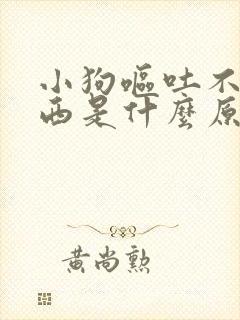 小狗嘔吐不
西是什麼原
黃尚勲